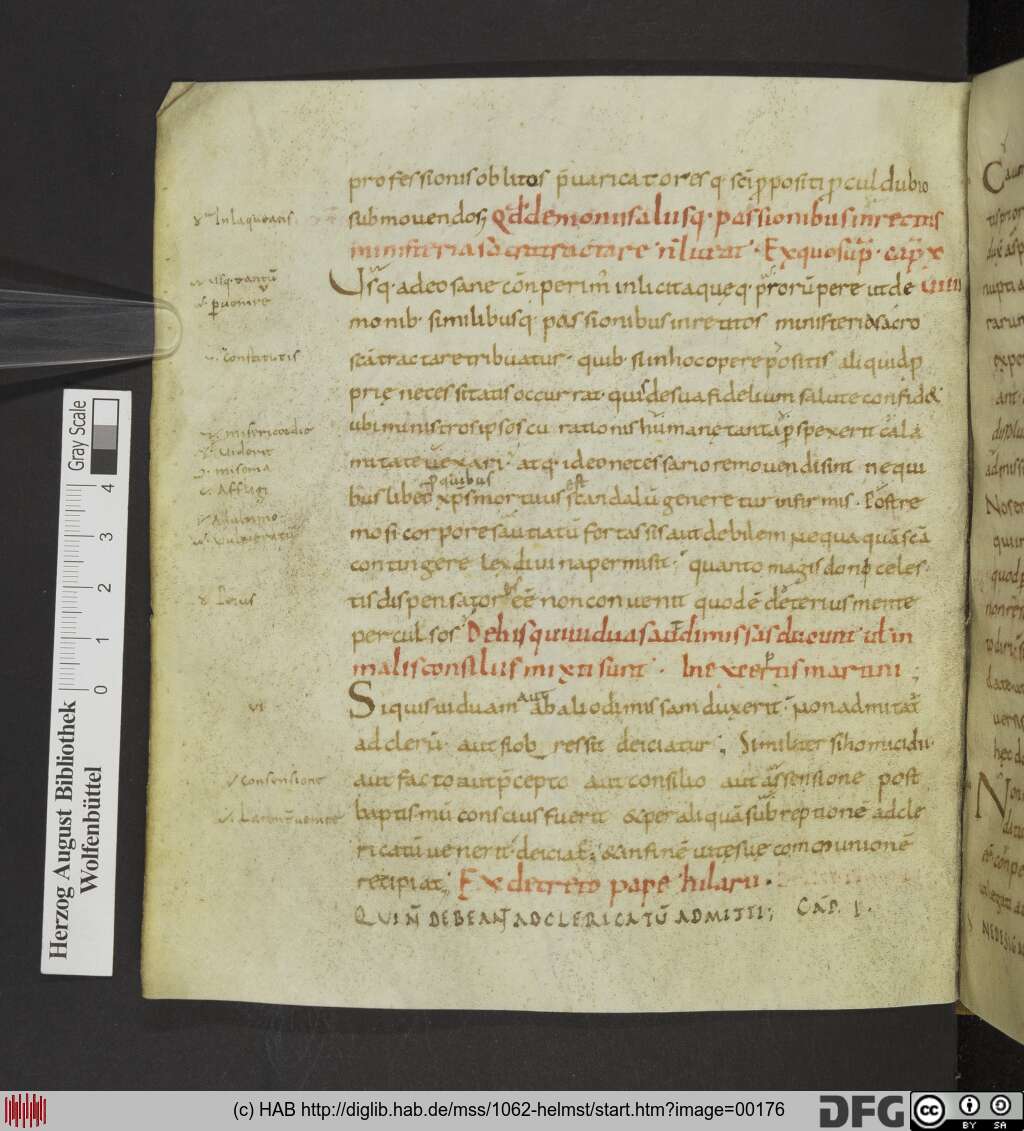 professionis oblitos p̄uaricatores q· sc̄i ppositi pculdubio
submouendos; Qd demoniis aliisq· passionibus inretitis
ministeria sacra tractare n̄ liceat· Ex quo sup̄· cap̄ x
Usq· adeo sane cōperim̄ inlicita queq· prorūpere ut de
monib· similibusq· passionibus inretitos ministeria sacro
sc̄a tractare tribuatur· quib· si in hoc opere positis aliquid p
prię necessitatis occurrat· quis de sua fidelium salute confidet
ubi ministros ipsos curationis humanę tanta pspexerit cala
mitate uexari· atq· ideo necessario remouendi sint ne qui
bus libet p quibus xp̄s mortuus est scandalū generetur infirmis· Postre
mo si corpore sautiatū fortassis aut debilem nequaquā sc̄a
contingere lex diuina permisit; quanto magis doni celes
tis dispensatores eē non conuenit quod ē deterius mente
perculsos De his qui uiduas aut dimissas ducunt ul in
malis consiliis mixti sunt· In excerptis martini;
Si quis uiduam aut ab alio dimissam duxerit· non admitat̄
ad clerū· aut si ob ressit deiciatur; Similiter si homicidii
aut facto aut p̄cepto aut consilio aut assensione post
baptismū conscius fuerit & per aliquā subreptionē ad cle
ricatū uenerit· deiciat̄; & in finē uitę suę communionē
recipiat; Ex decreto papę hilarii·
QUI N̄ DEBEANT AD CLERICATŪ ADMITTI; CAP̄. I.
Inlaqueatis
usq· tantū
puenire
Constitutis
misericordie
Uiderit
miseria
Affligi
uulneratū
Peius
VI
consensione
Herzog August Bibliothek
Wolfenbüttel
Gray Scale
0 1 2 3 4
(c) HAB http://diglib.hab.de/mss/1062-helmst/start.htm?image=00176
DFG
cc
BY SA